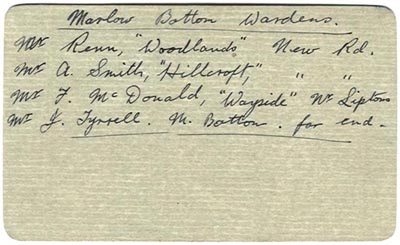 Marlow Botton Wardens.
Mr Renn, "Woodlands" New Rd.
Mr A. Smith, "Hillcroft", " "
Mr F. McDonald, "Wayside" Nr Liptons
Mr J. Tyrrell. M. Botton. far end.